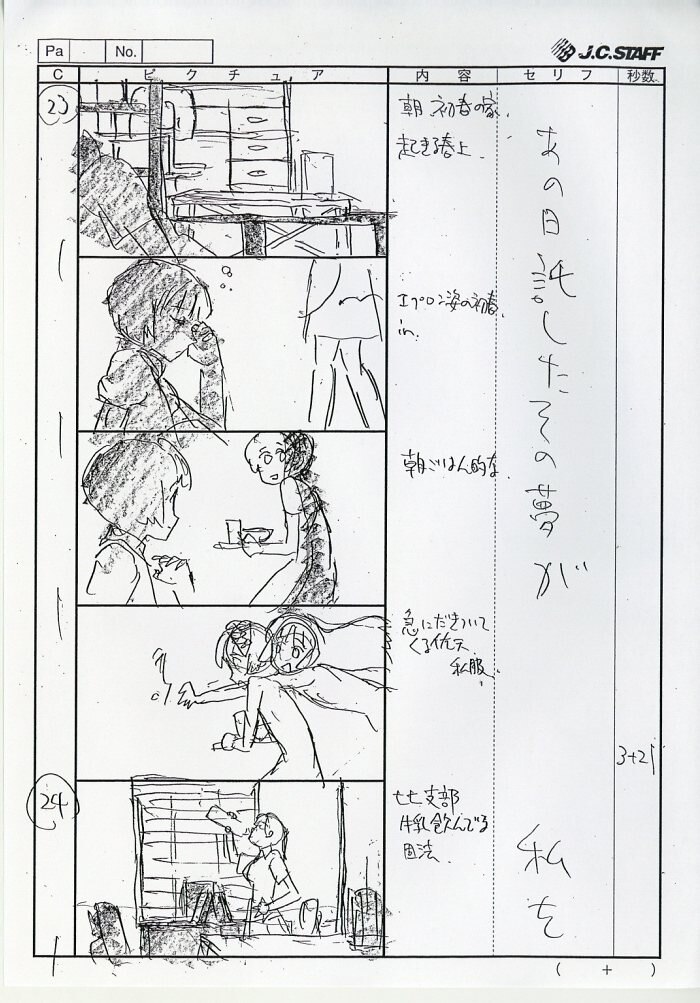 Pa
No.
J.C.STAFF
C
ピクチュア
内容
セリフ
秒数
23
朝 初春の家.
起きる春上.
エプロン姿の初春
in.
朝ごはん的な
急にだきついて
くる佐天
私服.
あの日託したその夢が
3+21
24
一七七支部
牛乳飲んでる
固法.
私を
( + )